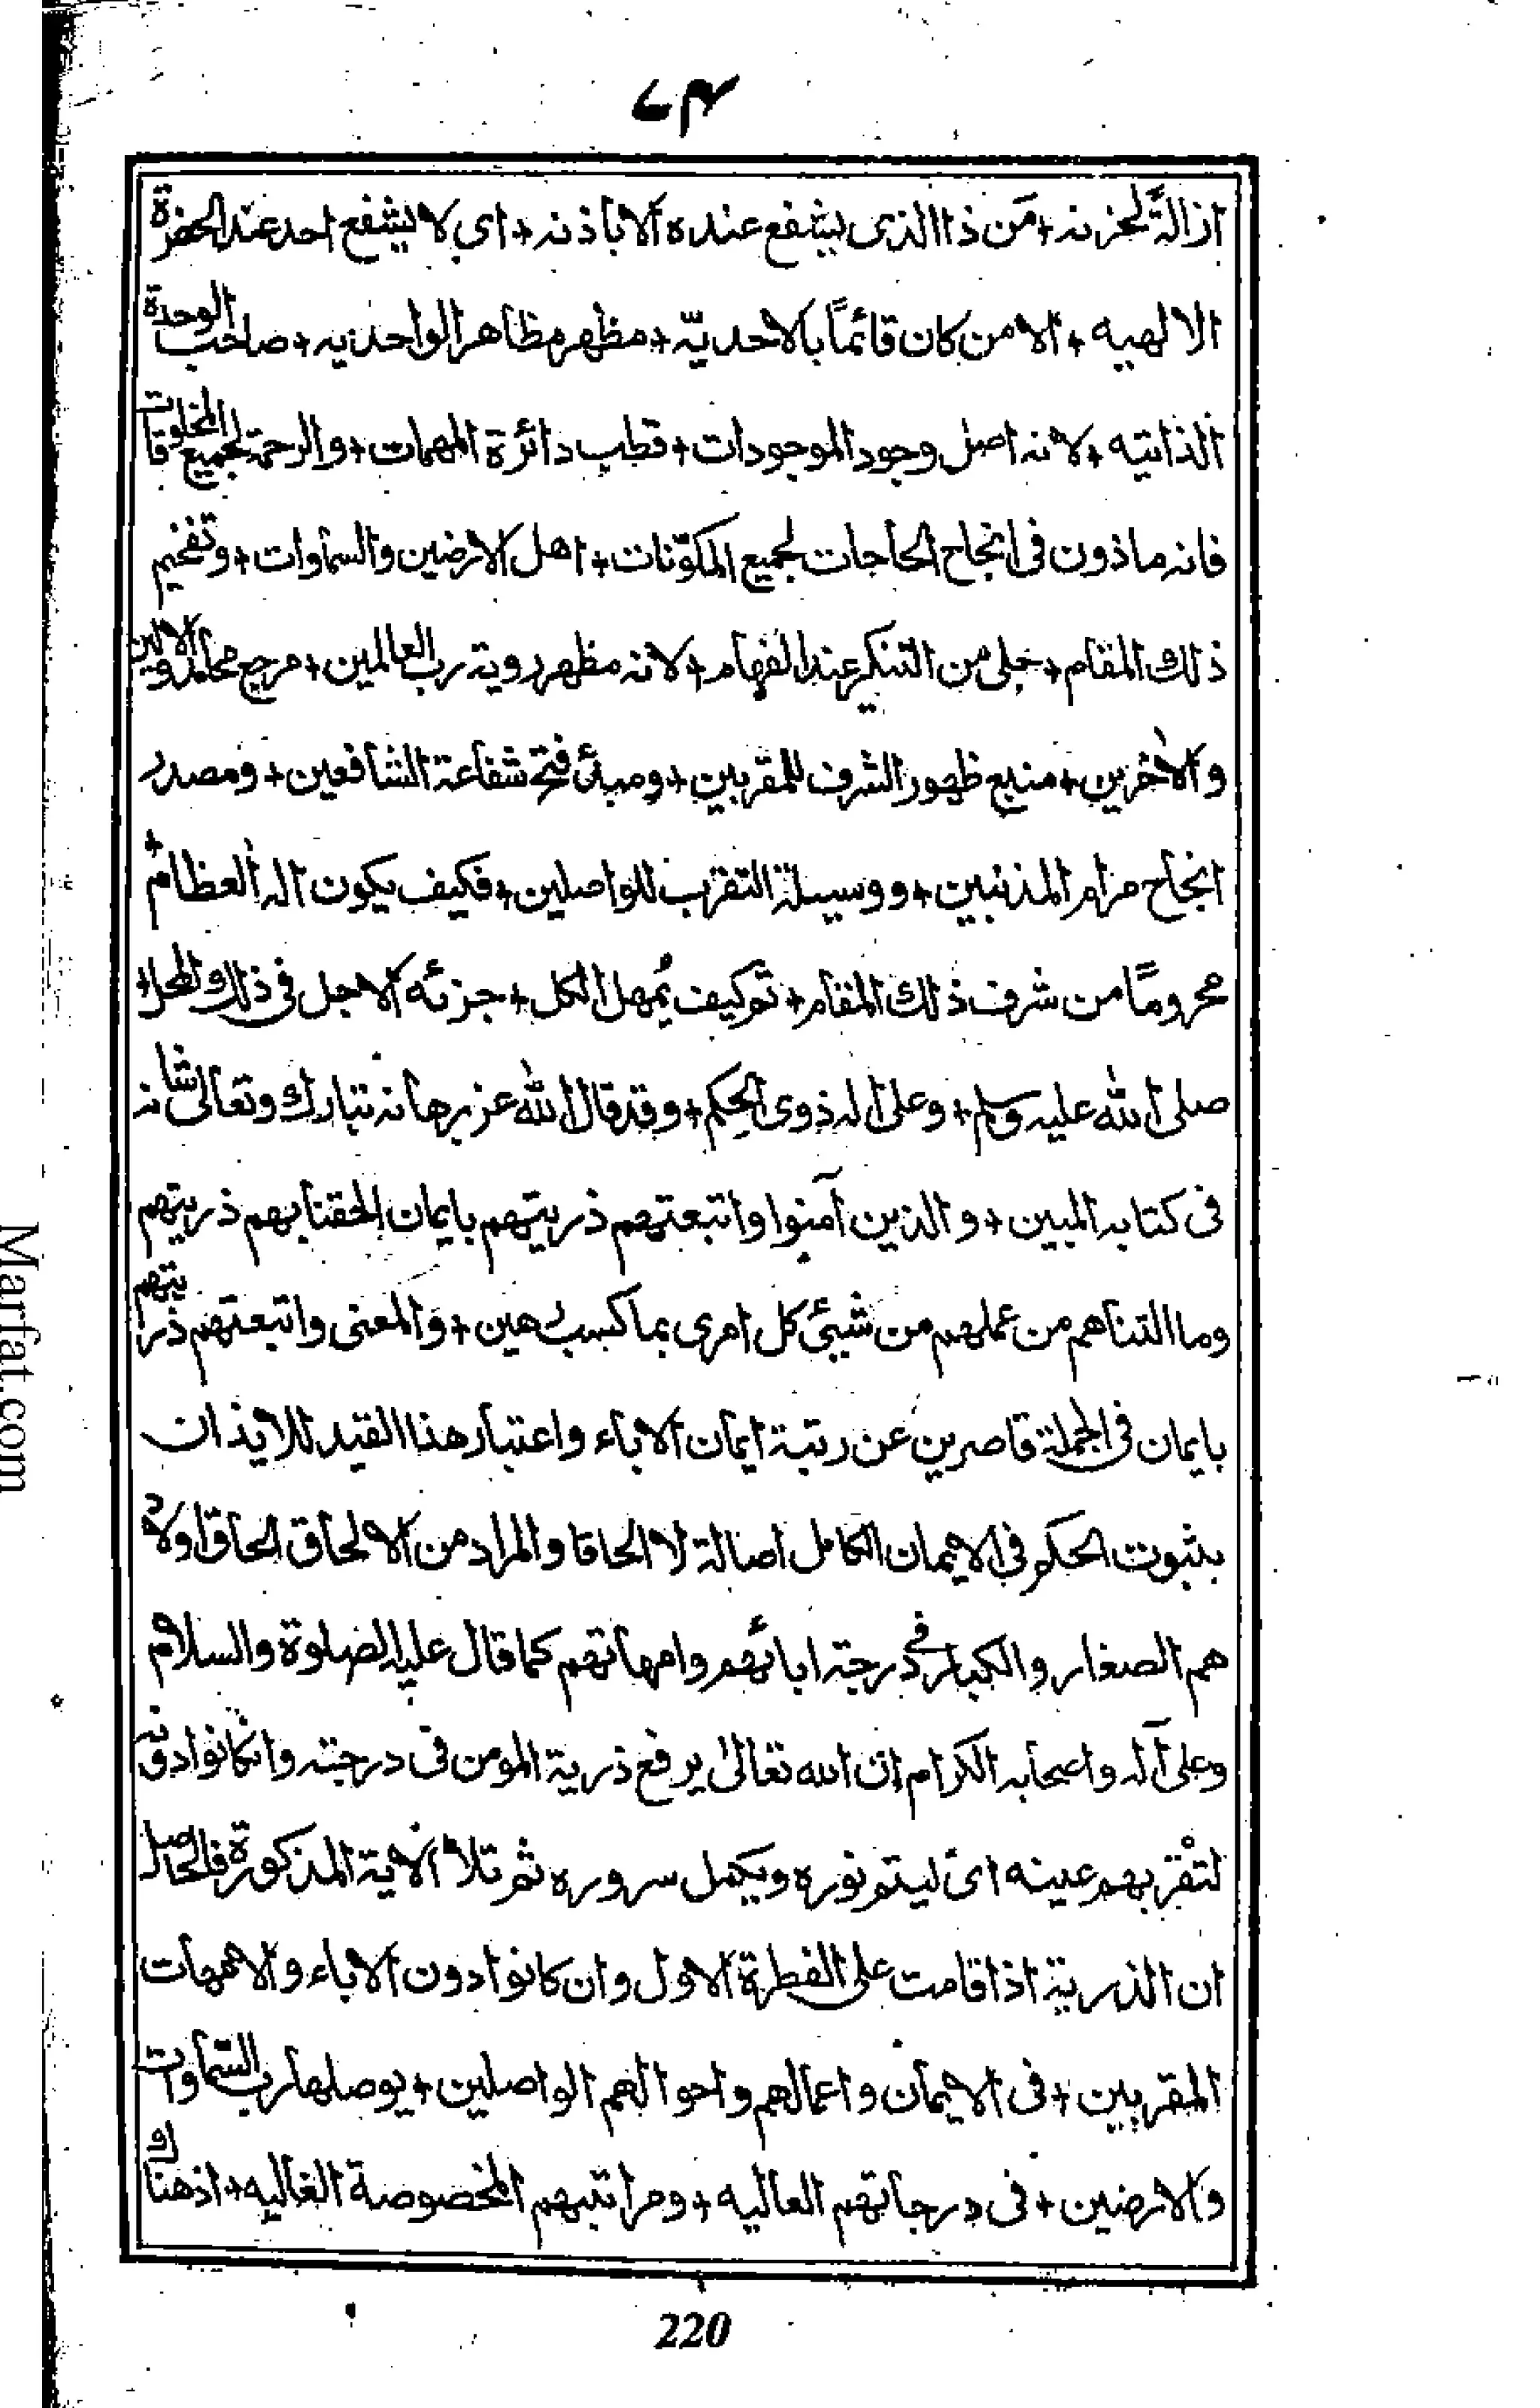 ۷۴
ازالةً لحزنه + مَن ذا الذی یشفع عنده الا باذنه + ای لا یشفع احد عند الحضرة
الالهیه + الا من کان قائماً بالاحدیّة + مظهر مظاهر الواحدیه + صاحب الوحدة
الذاتیه + لانه اصل وجود الموجودات + قطب دائرة المهمات + والرحمة لجمیع المخلوقات
فانه ماذون فی انجاح الحاجات لجمیع المکوّنات + اهل الارضین والسماوات + وتفخیم
ذلك المقام + جلی من التنکیر عند الفهام + لانه مظهر رویة رب العالمین + مرجع محامد الاولین
والاٰخرین + منبع ظهور الشرف للمقربین + ومبدئ فتح شفاعة الشافعین + ومصدر
انجاح مرام المذنبین + ووسیلة التقرب للواصلین + فکیف یکون اٰله العظام +
محروماً من شرف ذلك المقام + توکیف یُمهل الکل + جزئه الاجل فی ذلك المحل +
صلی الله علیه وسلم + وعلیٰ اٰله ذوی الحکم + وقد قال الله عز برهانه تبارك وتعالیٰ شانه
فی کتابه المبین + والذین آمنوا واتبعتهم ذریتهم بایمان الحقنا بهم ذریتهم
وما التناهم من عملهم من شیئ کل امری بما کسب رهین + والمعنی واتبعتهم ذریتهم
بایمان فی الجملة قاصرین عن رتبة ایمان الاٰباء واعتبار هذا القید للایذان
بثبوت الحکم فی الایمان الکامل اصالة لا الحاقا والمراد من الالحاق الحاق اولاد
هم الصغار والکبار فی درجة ابائهم وامهاتهم کما قال علیه الصلوة والسلام
وعلیٰ آله واصحابه الکرام ان الله تعالیٰ یرفع ذریة المومن فی درجته وان کانوا دونه
لتقر بهم عینه ای لیتم نوره ویکمل سروره ثم تلا الاٰیة المذکورة فالحاصل
ان الذریة اذا قامت علی الفطرة الاول وان کانوا دون الاٰباء والامهات
المقربین + فی الایمان واعمالهم واحوالهم الواصلین + یوصلها رب السماوات
والارضین + فی درجاتهم العالیه + ومراتبهم المخصوصة الغالیه + اذ هناك
220
Marfat.com